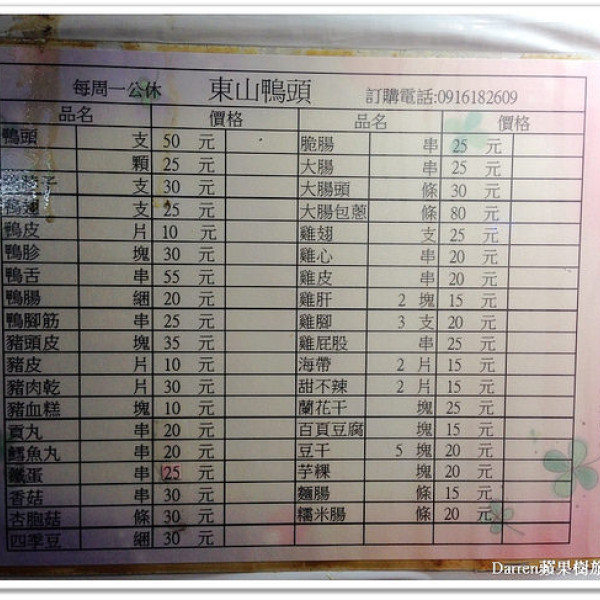 每周一公休 東山鴨頭 訂購電話:0916182609
品名 價格 品名 價格
鴨頭 支 50 元 脆腸 串 25 元
顆 25 元 大腸 串 25 元
子 支 30 元 大腸頭 條 30 元
鴨翅 支 25 元 大腸包蔥 條 80 元
鴨皮 片 10 元 雞翅 支 25 元
鴨胗 塊 30 元 雞心 串 20 元
鴨舌 串 55 元 雞皮 串 20 元
鴨腸 綑 20 元 雞肝 2 塊 15 元
鴨腳筋 串 25 元 雞腳 3 支 20 元
豬頭皮 塊 35 元 雞屁股 串 25 元
豬皮 片 10 元 海帶 2 片 15 元
豬肉乾 片 30 元 甜不辣 2 片 15 元
豬血糕 塊 10 元 蘭花干 塊 25 元
貢丸 串 20 元 百頁豆腐 塊 15 元
鱈魚丸 串 20 元 豆干 5 塊 20 元
鐵蛋 串 25 元 芋粿 塊 20 元
香菇 串 30 元 麵腸 條 15 元
杏胞菇 條 30 元 糯米腸 條 20 元
四季豆 綑 30 元
Darren蘋果樹旅